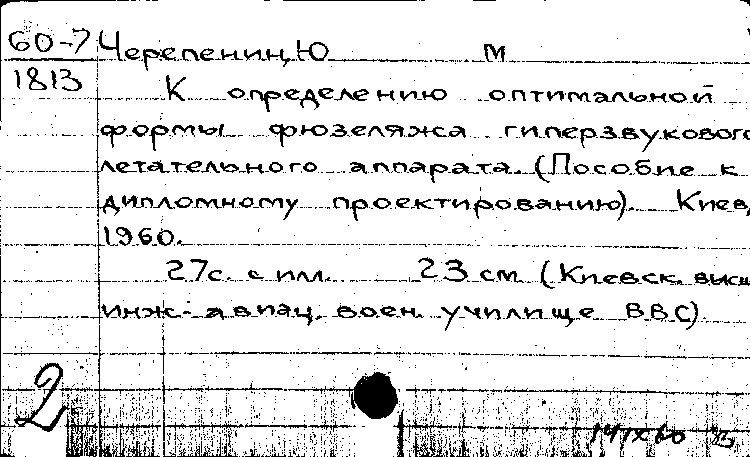 60-7 Черепенин, Ю М
1813
К определению оптимальной
формы фюзеляжа гиперзвукового
летательного аппарата. (Пособие к
дипломному проектированию). Киев,
1960.
27с. с илл. 23 см (Киевск. высш
инж.-авиац. воен. училище ВВС)
2